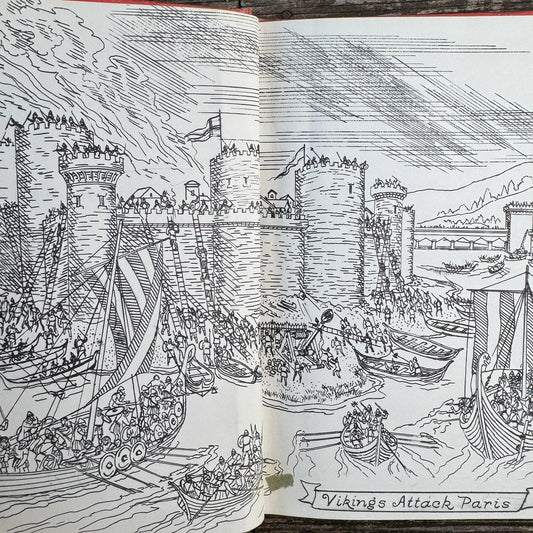 Vikings Attack Paris